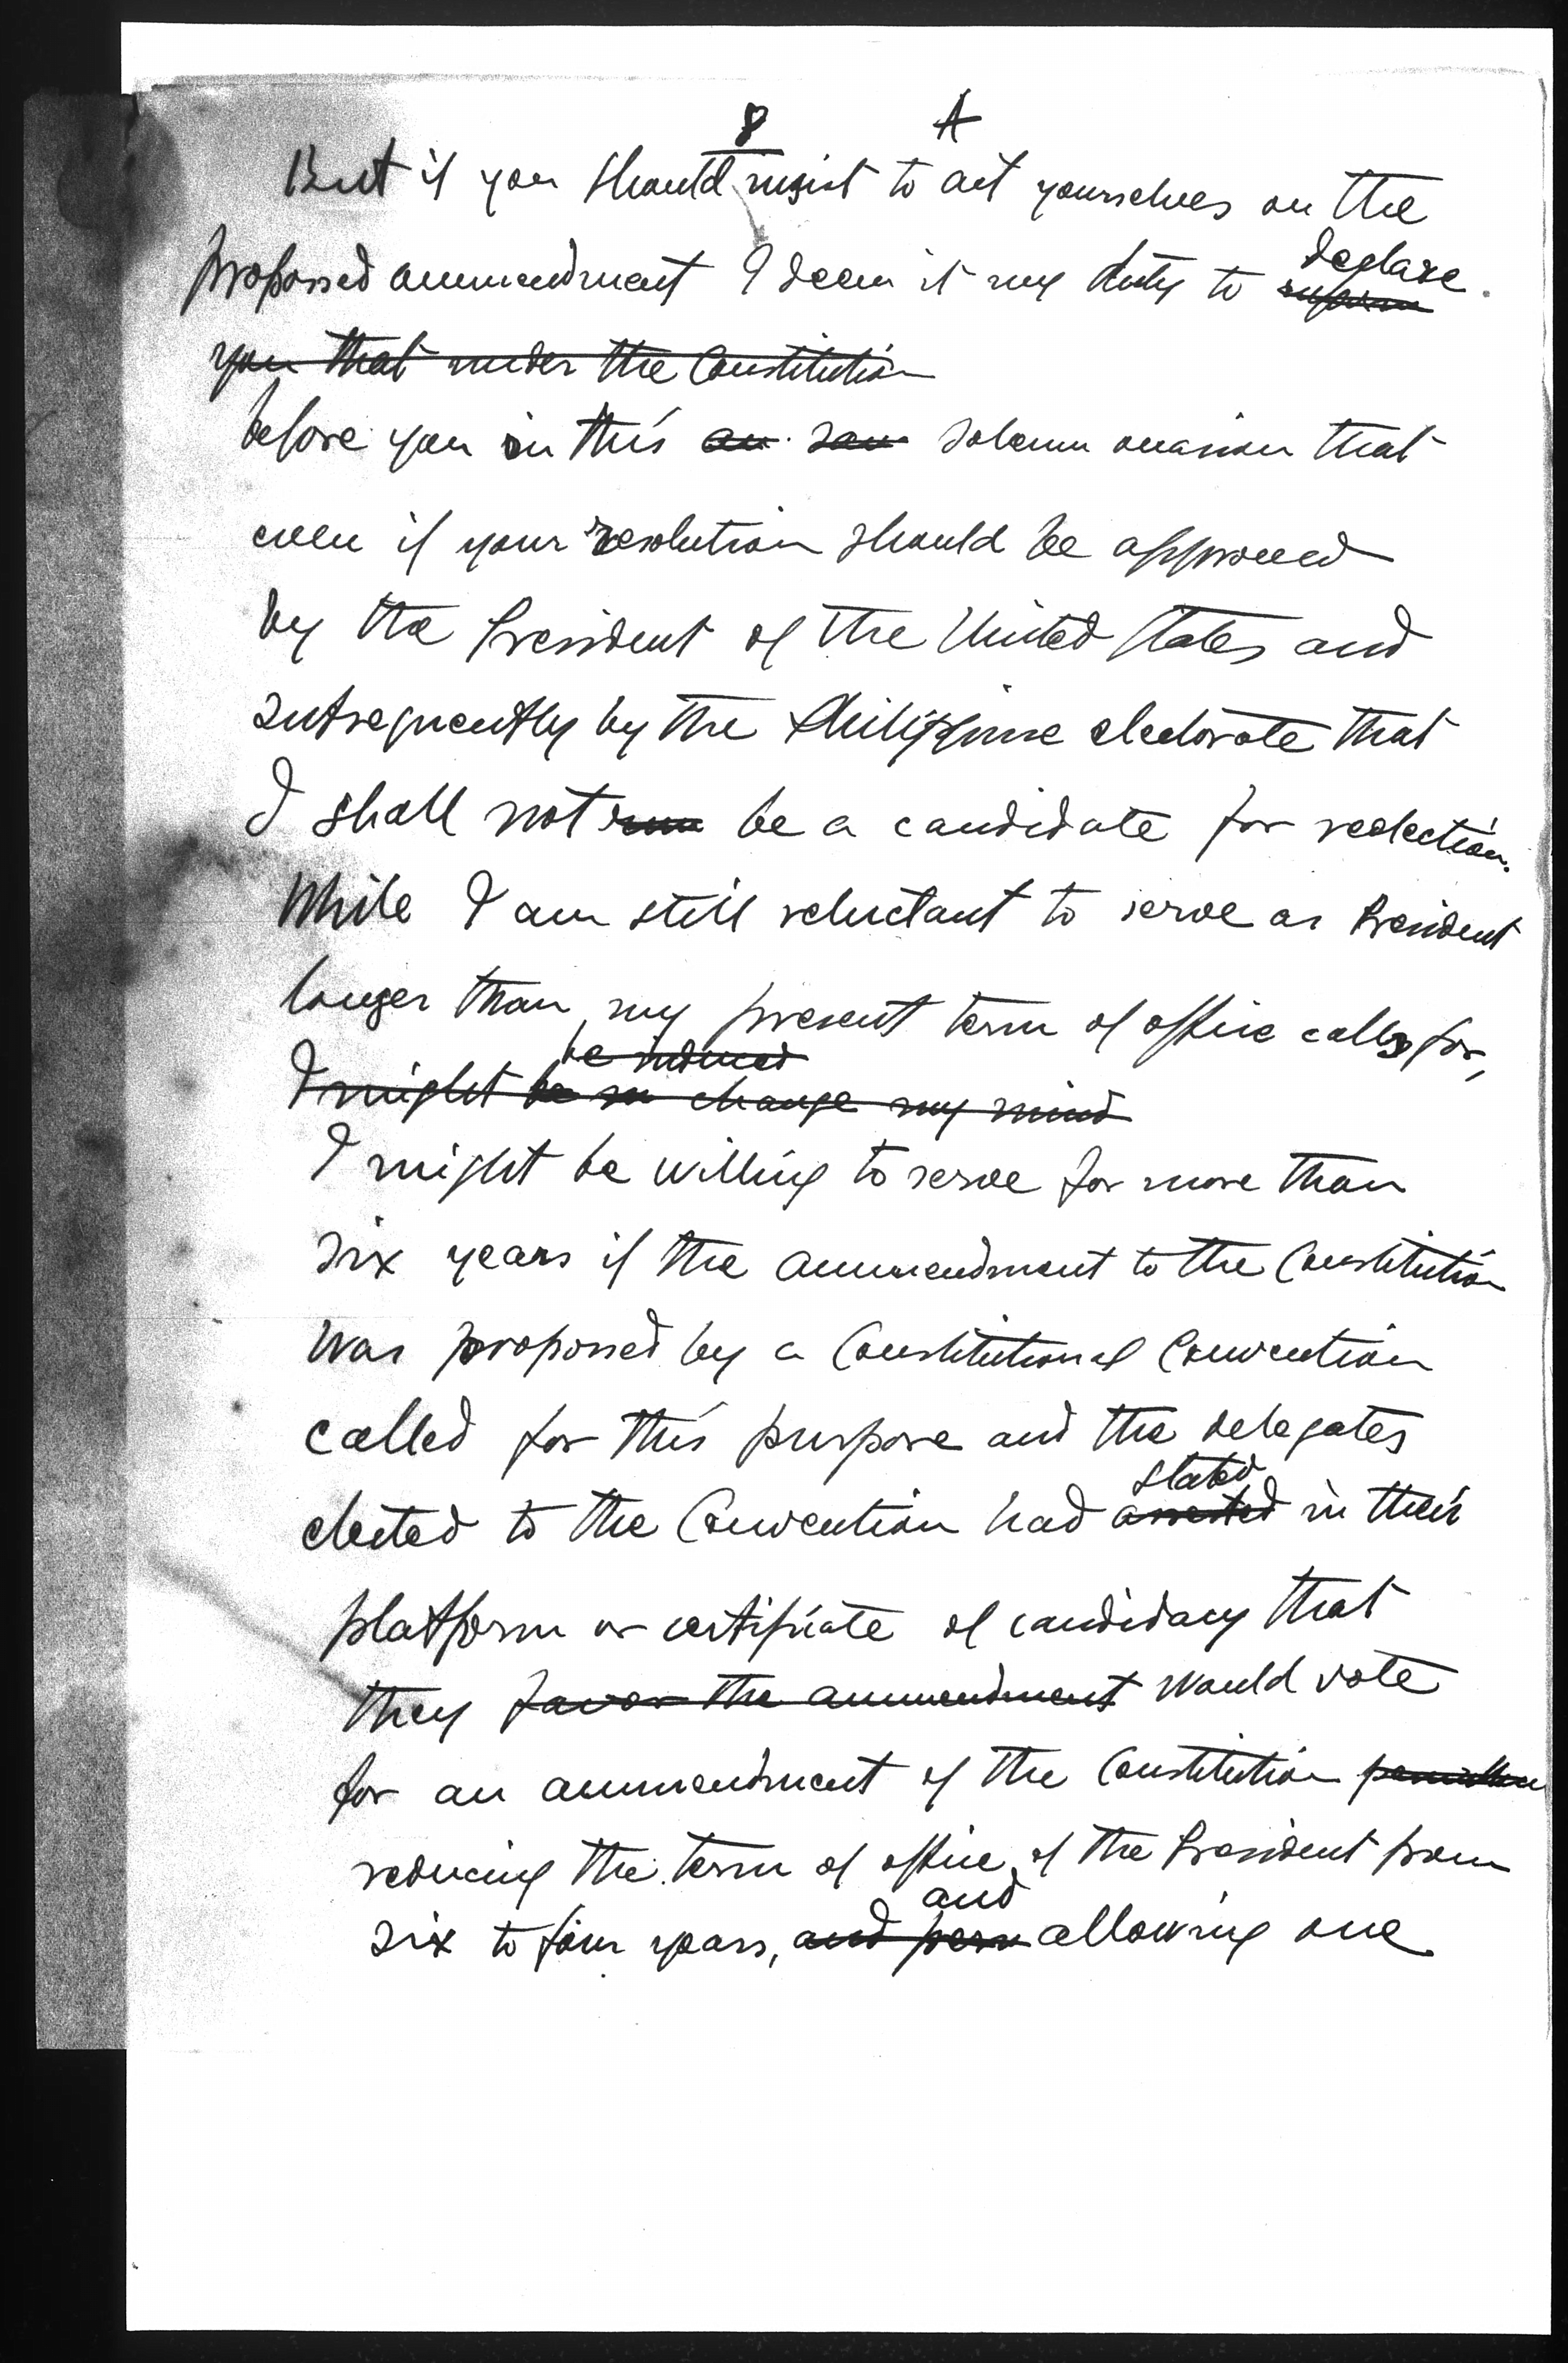 8 A
But if you should insist to act yourselves on the
proposed ammendment I deem it my duty to declare
inform
you that under the Constitution
before you in this an solemn occasion that
even if your resolution should be approved
by the President of the United States and
subsequently by the Philippine electorate that
I shall not run be a candidate for reelection.
While I am still reluctant to serve as President
longer than my present term of office calls for,
be induced
I might be change my mind
I might be willing to serve for more than
six years if the ammendment to the Constitution
was proposed by a Constitutional Convention
called for this purpose and the delegates
stated
elected to the Convention had asserted in their
platform or certificate of candidacy that
they favor the ammendment would vote
for an ammendment of the Constitution
reducing the term of office of the President from
and
six to four years, and perm allowing one